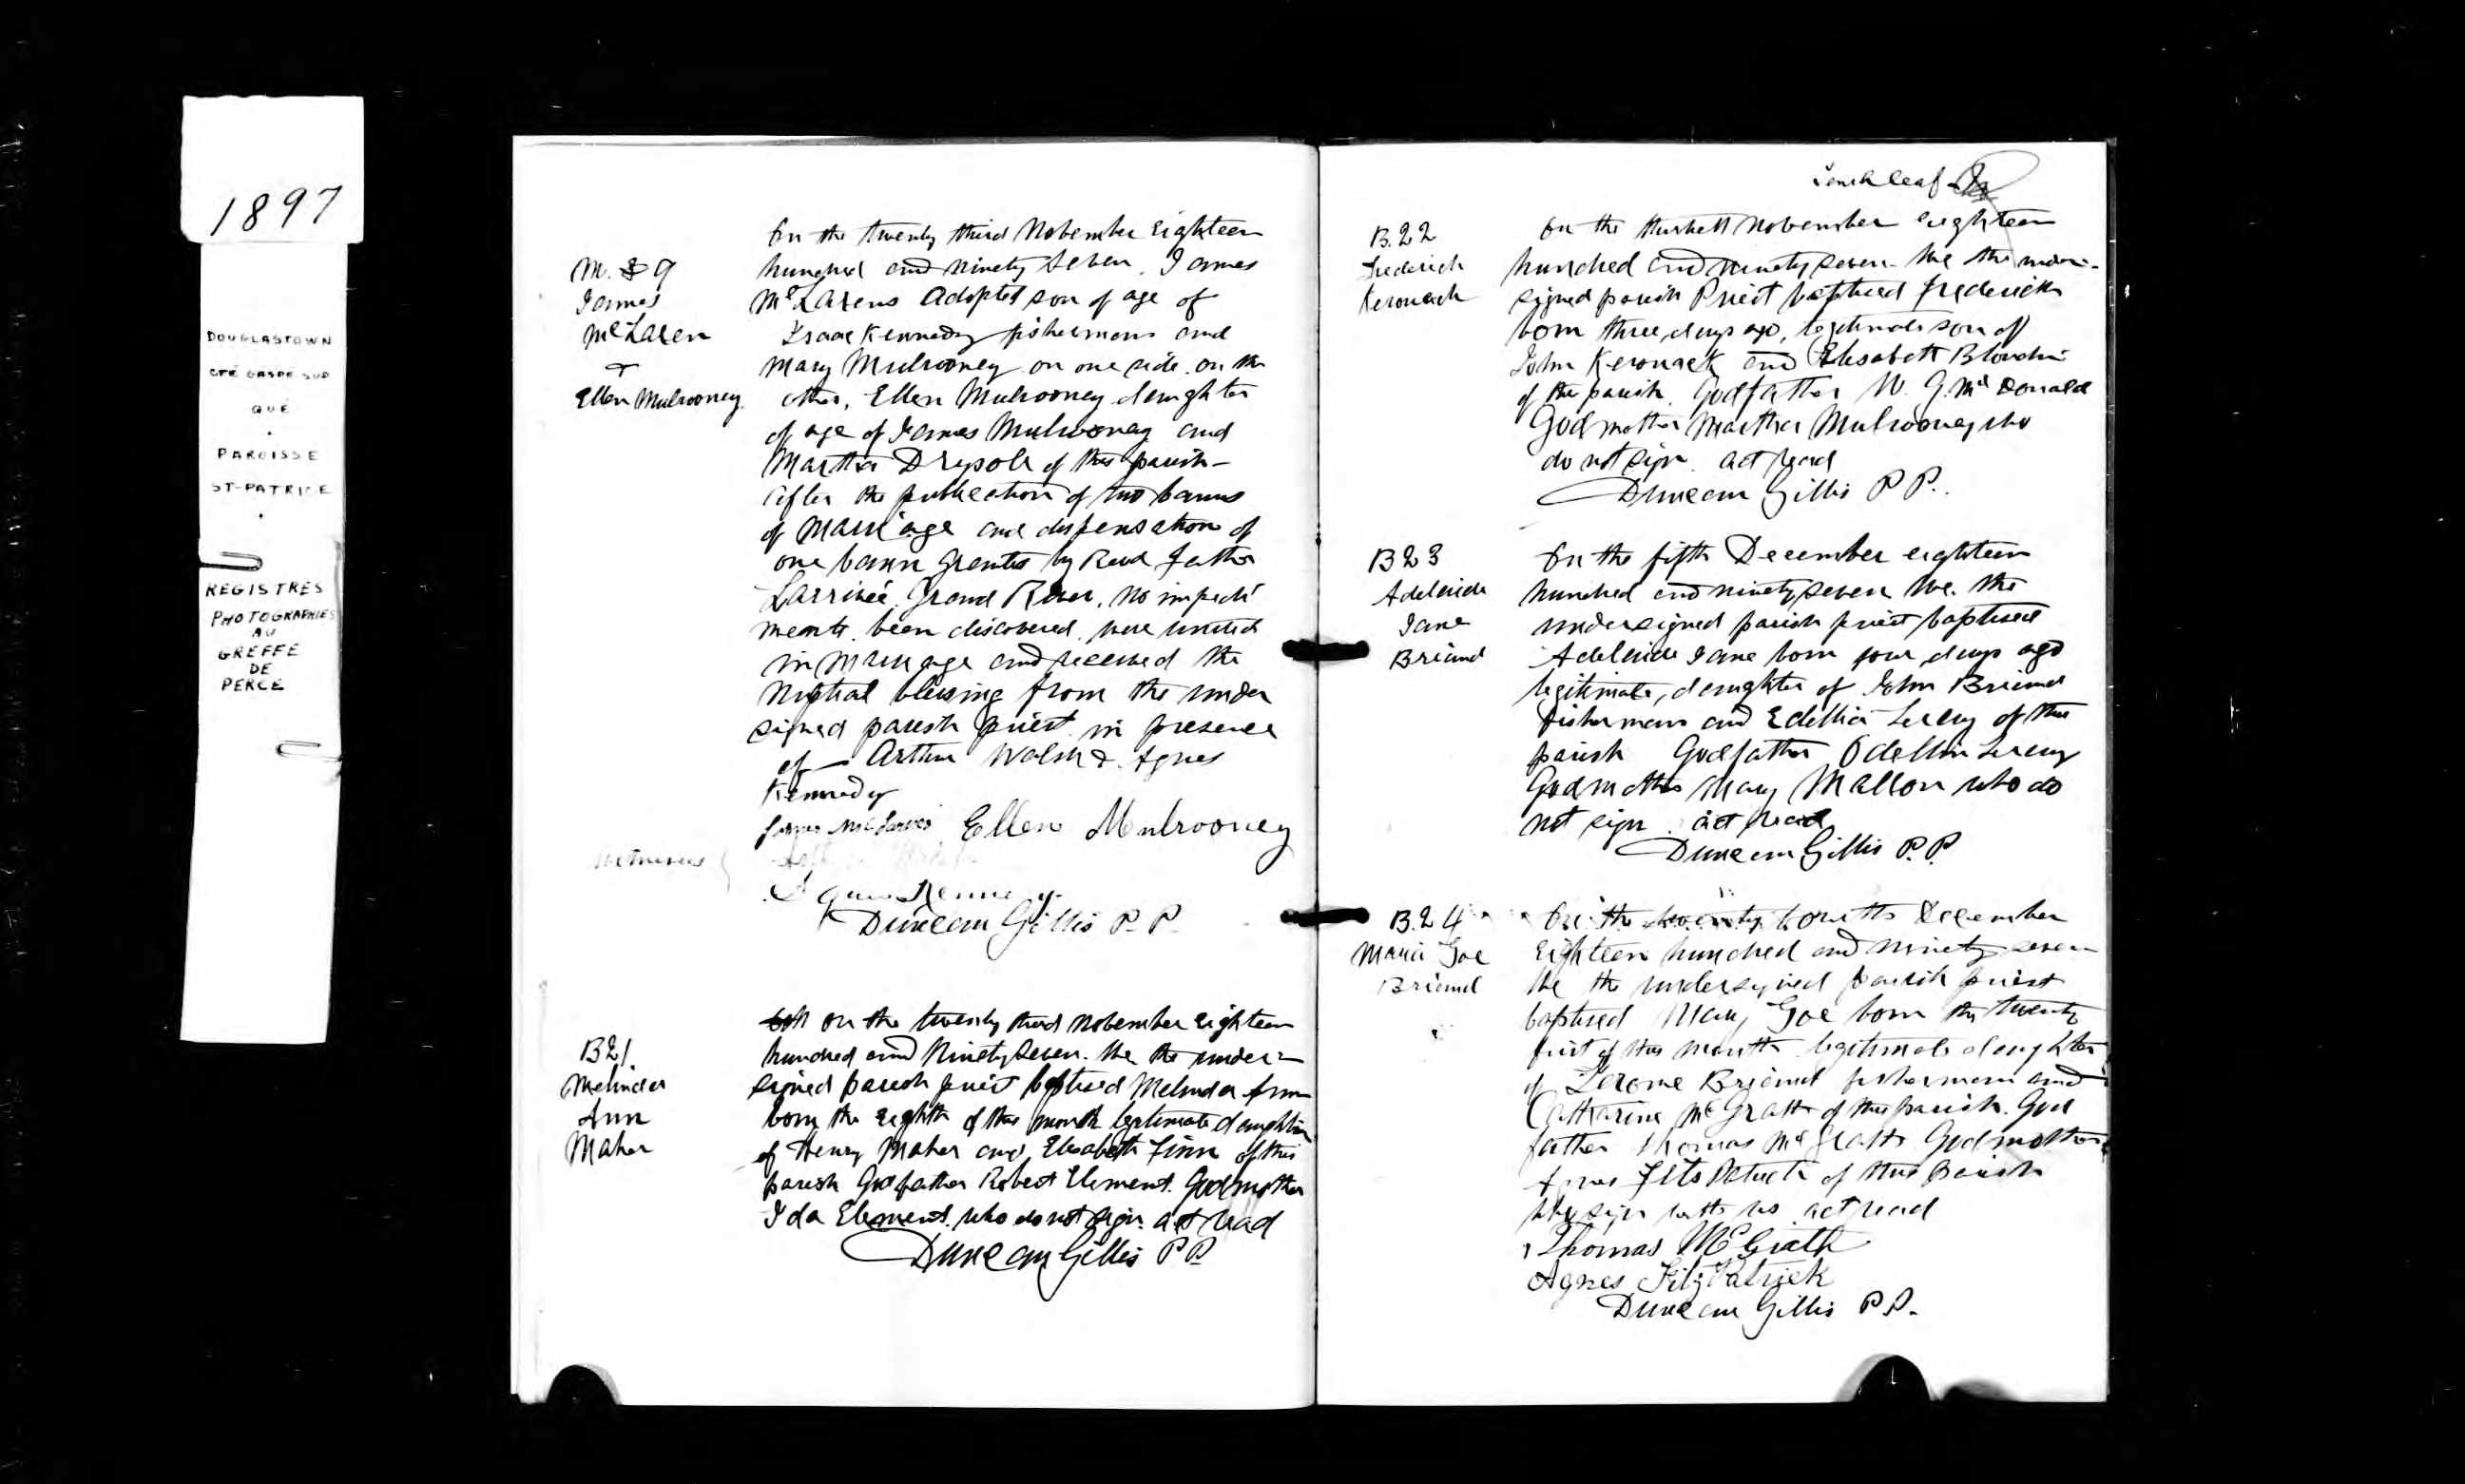 1897
DOUGLASTOWN
CTÉ GASPÉ SUD
QUÉ
PAROISSE
ST-PATRICE
REGISTRES
PHOTOGRAPHIÉS
AU
GREFFE
DE
PERCÉ
M. 9
James
McLaren
&
Ellen Mulrooney
On the twenty third November eighteen
hundred and ninety seven. James
McLarens adopted son of age of
Isaac Kennedy fisherman and
Mary Mulrooney on one side. on the
other, Ellen Mulrooney daughter
of age of James Mulrooney and
Martha of this parish -
after the publication of two banns
of marriage and dispensation of
one bann granted by Revd Father
Larrivée Grand River. No impedi
ments been discovered, were united
in marriage and received the
nuptial blessing from the under
signed parish priest in presence
of - Arthur Walsh & Agnes
Kennedy
James McLaren Ellen Mulrooney
witnesses
Agnes Kennedy
Duncan Gillis P. P.
B 21.
Melinda
Ann
Maher
on the twenty third November eighteen
hundred and ninety seven. We the under=
signed parish priest baptised Melinda Ann
born the eighth of this month legitimate daughter
of Henry Maher and Elisabeth Finn of this
parish Godfather Robert Element. Godmother
Ida Element. who do not sign. act read
Duncan Gillis P P.
Tenth leaf
B. 22
Frederick
Kerouack
On the November eighteen
hundred and ninety seven. We the under-
signed parish Priest baptised Frederick
born three days ago, legitimate son of
John Kerouack and Elisabeth Blondin
of this parish. Godfather W. G. McDonald
Godmother Martha Mulrooney who
do not sign. act read
Duncan Gillis P P.
B 23
Adelaide
Jane
Briand
On the fifth December eighteen
hundred and ninety seven We. the
undersigned parish priest baptised
Adelaide Jane born four days ago
legitimate, daughter of John Briand
fisherman and of this
parish Godfather
Godmother Mary Mallon who do
not sign. act read
Duncan Gillis P. P.
B. 24
Maria Zoe
Briand
On the twenty fourth December
eighteen hundred and ninety seven
We the undersigned parish priest
baptised Mary Zoe born the twenty
first of this month legitimate daughter
of Jerome Briand fisherman and
Catharine McGrath of this parish. God
father Thomas McGrath Godmother
Agnes FitsPatrick of this Parish
who sign with us. act read
Thomas McGrath
Agnes FitzPatrick
Duncan Gillis P. P.